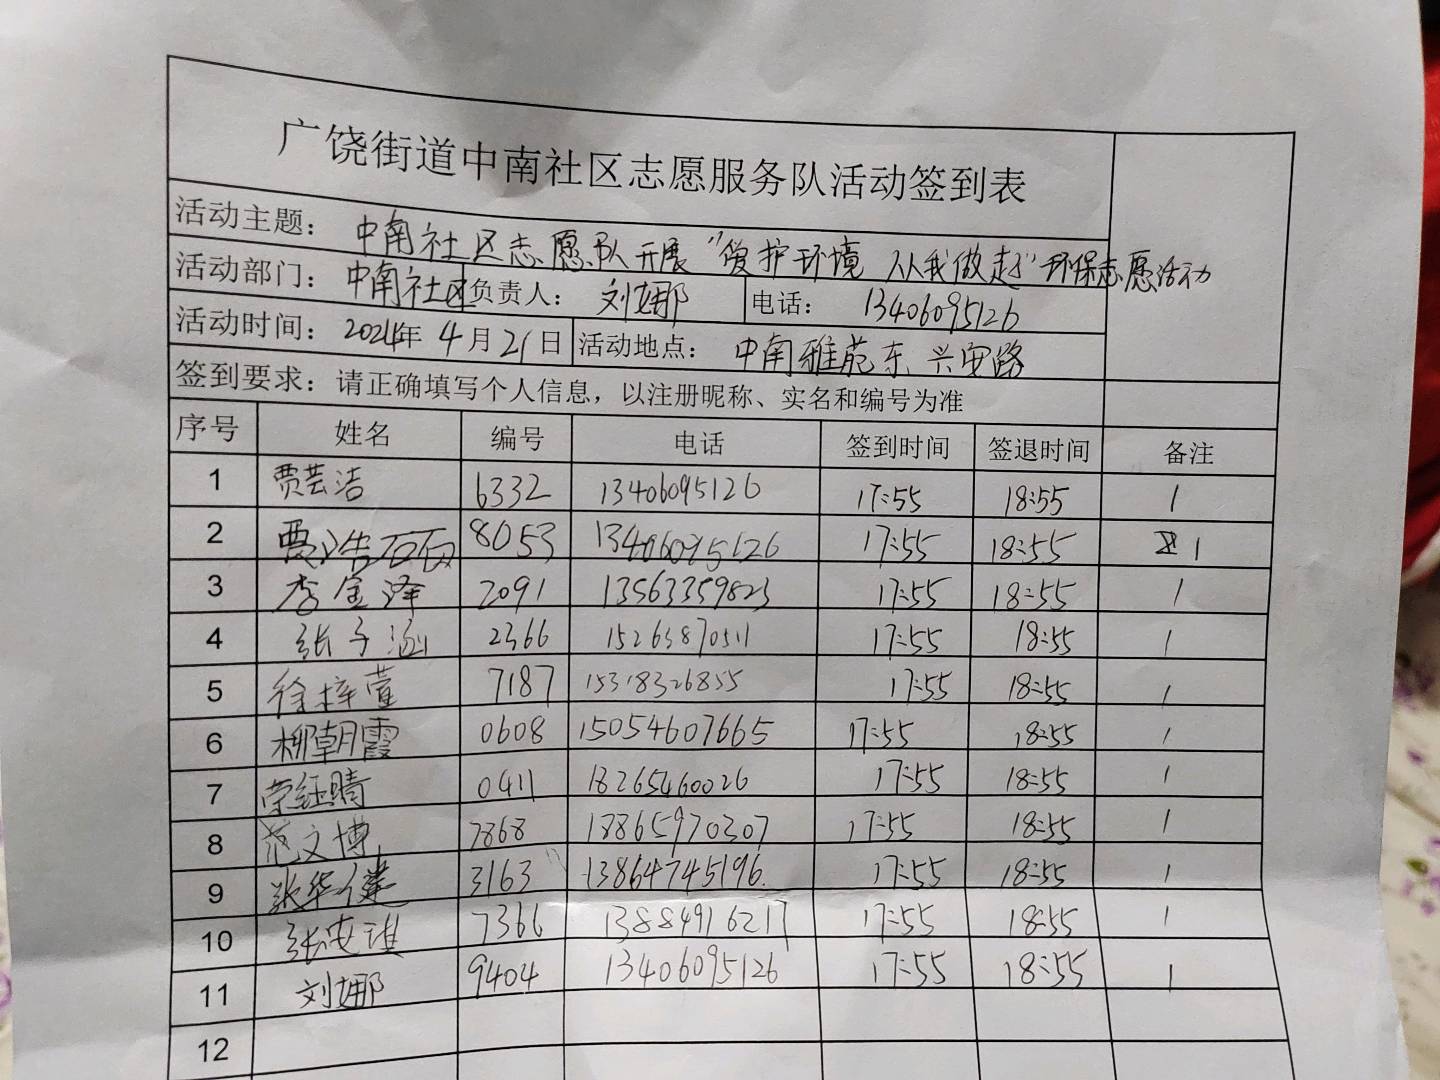 广饶街道中南社区志愿服务队活动签到表
活动主题： 中南社区志愿队开展“爱护环境 从我做起”环保志愿活动
活动部门： 中南社区 负责人： 刘娜 电话： 13406095126
活动时间： 2024年 4月21日 活动地点： 中南雅苑东 兴安路
签到要求：请正确填写个人信息，以注册昵称、实名和编号为准
序号 姓名 编号 电话 签到时间 签退时间 备注
1 贾芸洁 6332 13406095126 17:55 18:55 1
2 贾浩 8053 13406095126 17:55 18:55 1
3 李金泽 2091 13563359823 17:55 18:55 1
4 张子涵 2366 15263870511 17:55 18:55 1
5 徐梓萱 7187 15318326855 17:55 18:55 1
6 柳朝霞 0608 15054607665 17:55 18:55 1
7 荣钰晴 0411 18265460026 17:55 18:55 1
8 范文博 7868 18865970307 17:55 18:55 1
9 张华健 3163 13864745196. 17:55 18:55 1
10 张 7366 13884916217 17:55 18:55 1
11 刘娜 9404 13406095126 17:55 18:55 1
12